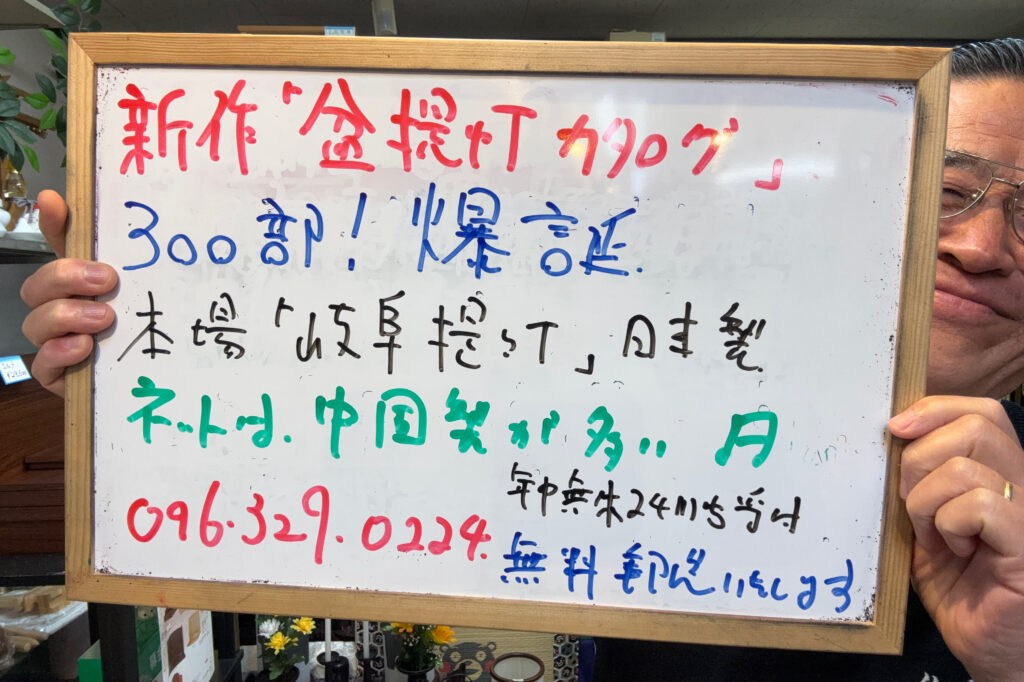 新作「盆提灯カタログ」
300部!爆誕.
本場「岐阜提灯」日本製.
ネットは、中国製が多い 月
096.329.0224.
年中無休24時間受付
無料郵送いたします